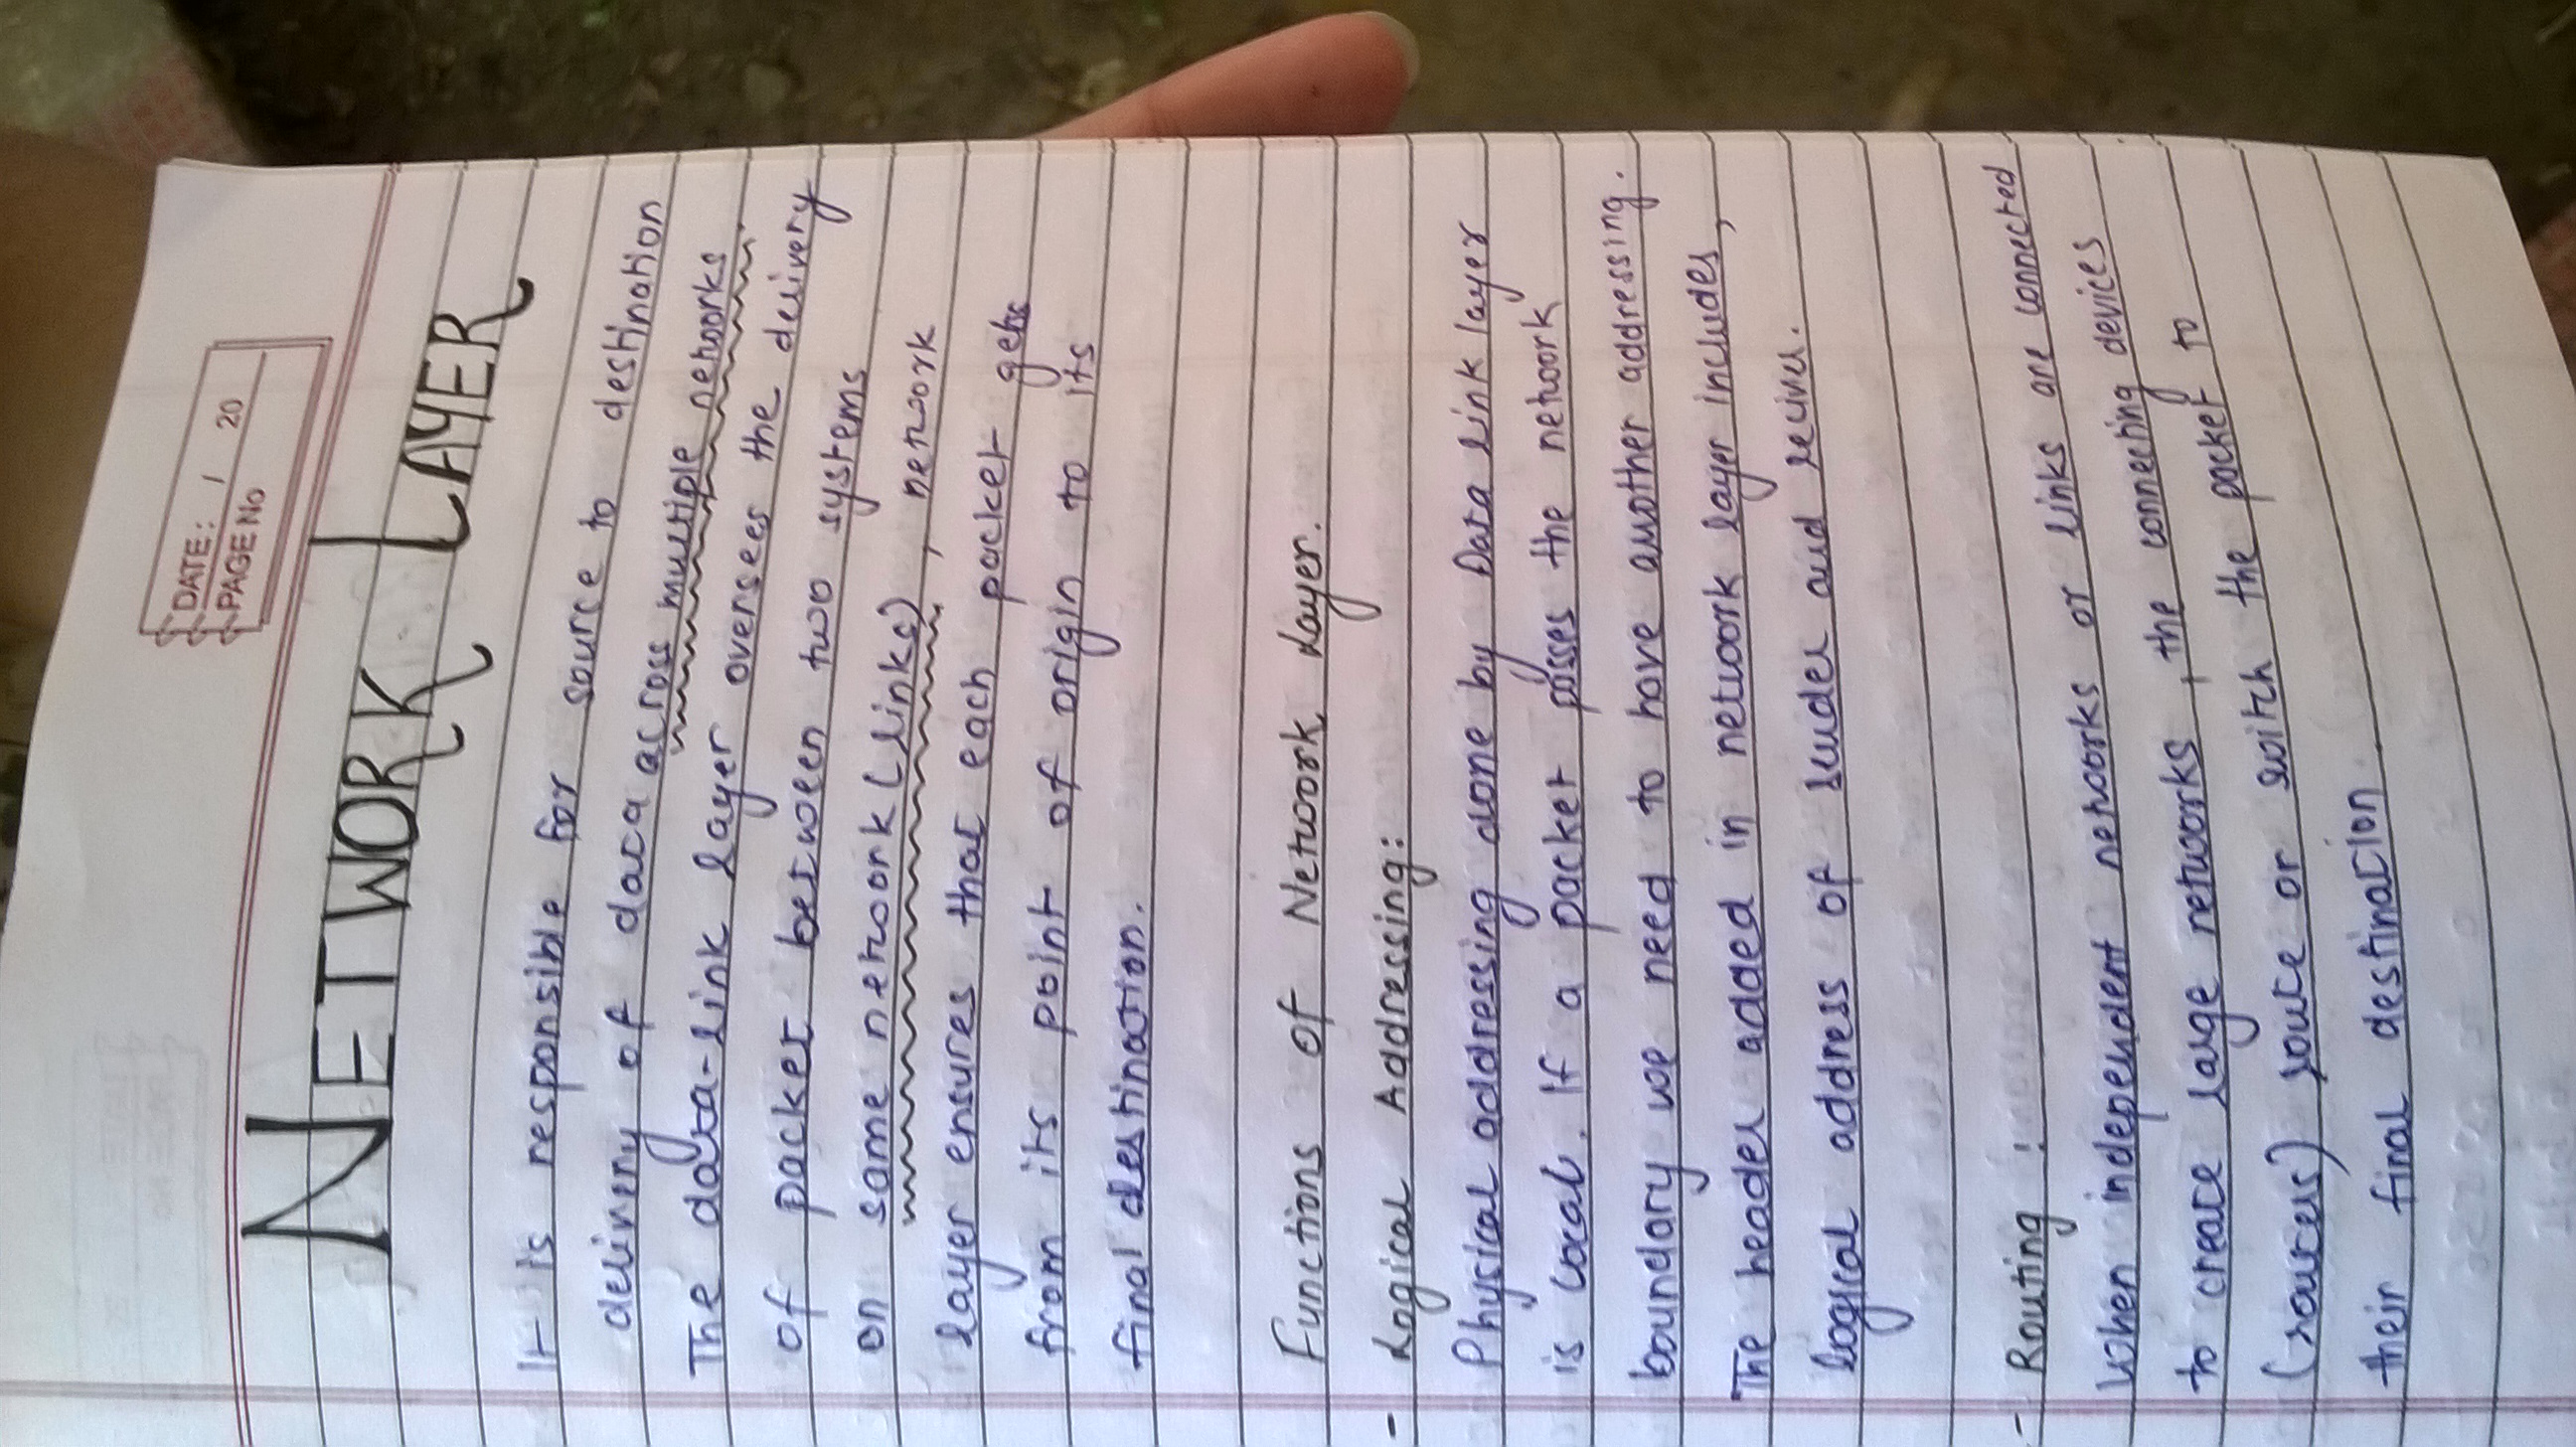 DATE: / 20
PAGE No
NETWORK LAYER
It is responsible for source to destination
delivery of data across multiple networks
The data-link layer oversees the delivery
of packet between two systems
on same network (links), network
layer ensures that each packet gets
from its point of origin to its
final destination.
Functions of Network Layer.
- Logical Addressing:
Physical addressing done by Data link layer
is local. If a packet passes the network
boundary we need to have another addressing.
The header added in network layer includes,
logical address of sender and reciver.
- Routing :
When independent networks or links are connected
to create large networks, the connecting devices
(routers) route or switch the packet to
their final destination